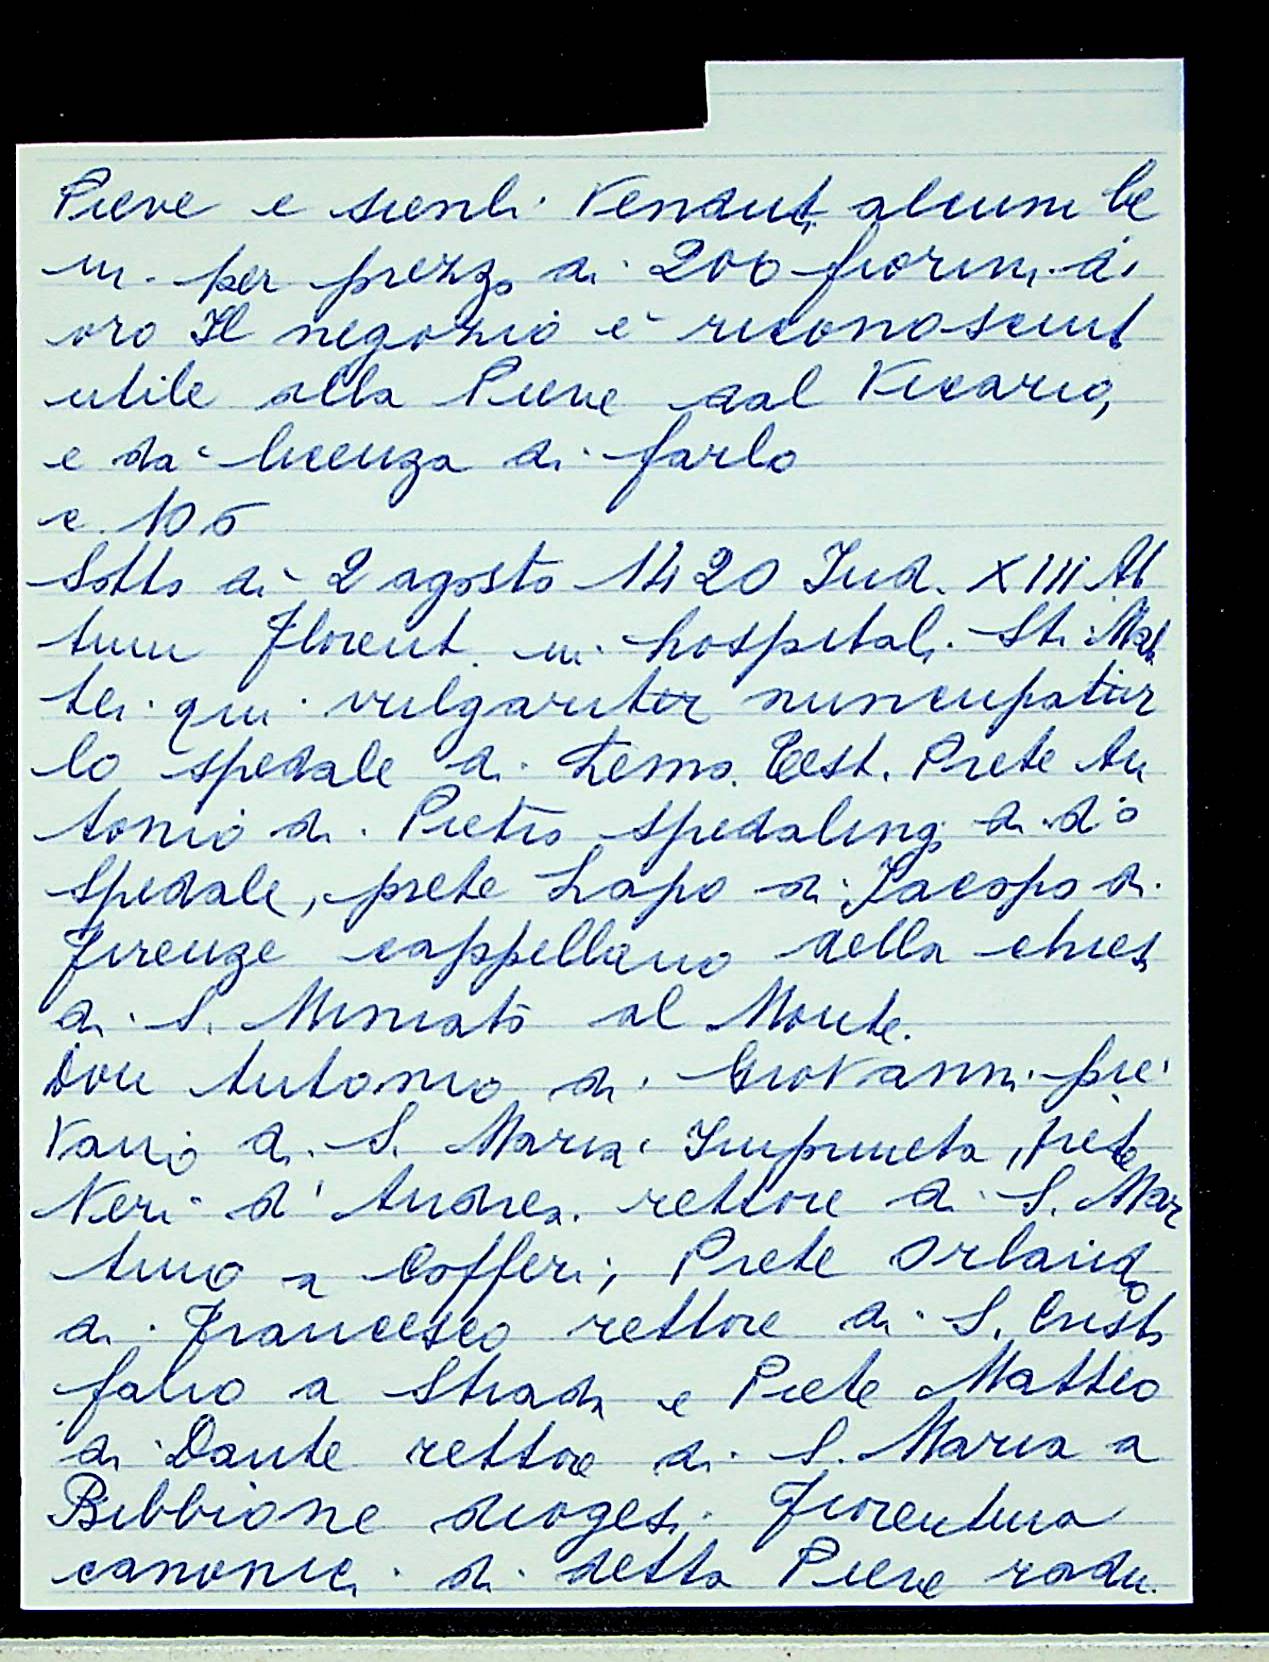 Pieve e sienti. Venduti alcuni be
ni per prezzo di 200 fiorini di
oro Il negozio è riconosciut
utile alla Pieve dal Vicario,
e da licenza di farlo
c. 105
Sotto di 2 agosto 1420 Ind. XIII Ac
tum Florent. in hospitali Sti Mat
tei qui vulgariter nuncupatur
lo spedale di Lemo. Test. Prete An
tonio di Pietro spedalingo di do
spedale, prete Lapo di Jacopo di
Firenze cappellano della chiesa
di S. Miniato al Monte.
Don Antonio di Giovanni pie
vano di S. Maria Impruneta, prete
Neri d'Andrea rettore di S. Mar
tino a Cofferi; Prete Orlando
di Francesco rettore di S. Cristo
fano a Strada e Prete Matteo
di Dante rettore di S. Maria a
Bibbione dioges. Fiorentina
canonici di detta Pieve radu